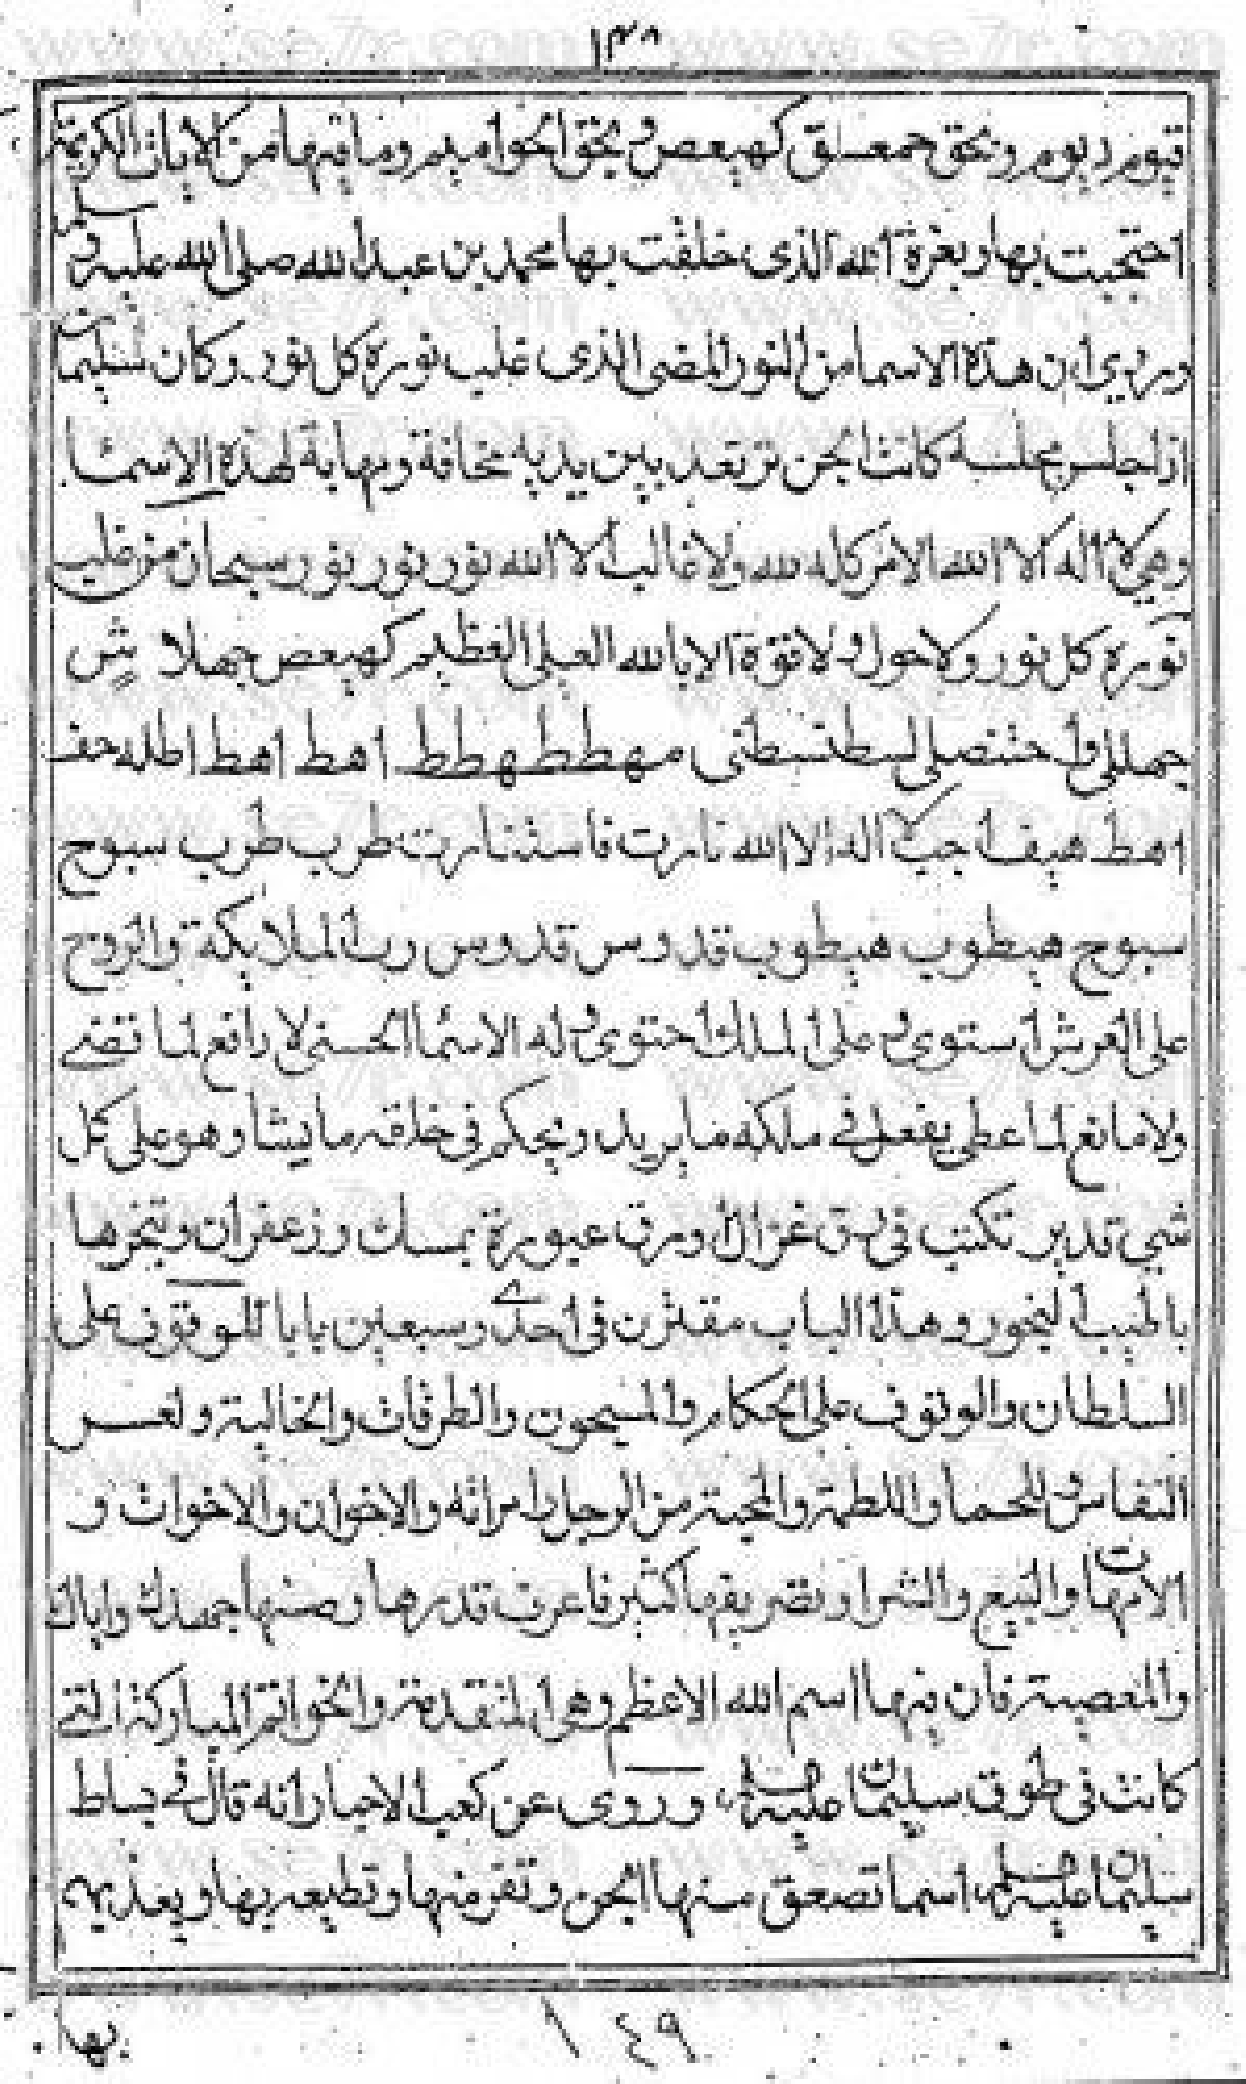 ١٣٨
قيوم ديوم وبحق حمعسق كهيعص وبحق الحواميم وما فيها من الايات الكريمة
احتجبت بها وبعزة الله الذي خلقت بها محمد بن عبد الله صلى الله عليه وسلم
وروي ان هذه الاسما من النور المضي الذي غلب نوره كل نور وكان سليمان
اذا جلس مجلسه كانت الجن ترتعد بين يديه مخافة ومهابة لهذه الاسما
وهي لا اله الا الله الامر كله لله ولا غالب الا الله نور نور نور سبحان من غلب
نوره كل نور ولا حول ولا قوة الا بالله العلي العظيم كهيعص جهلا ش
مهطط هطط اهط اهط اهط
اهط الله الا الله نارت فاستنارت طرب طرب سبوح
سبوح هيطوب هيطوب قدوس قدوس رب الملايكة والروح
على العرش استوى وعلى الملك احتوى وله الاسما الحسنى لا رافع لما تقضي
ولا مانع لما عطى يفعل في ملكه ما يريد ويحكم في خلقه ما يشا وهو على كل
شي قدير تكتب في رق غزال او ورق بمسك وزعفران وتبخرها
بالطيب البخور وهذا الباب في احدى وسبعين بابا للوقوف على
السلطان والوقوف على الحكام والمسجون والطرقات والخالية ولعسر
النفاس وللحما واللطمة والمحبة من الرجل وامراته والاخوان والاخوات و
الامهات والبيع والشرا وتصريفها كثير فاعرف قدرها وصنها جهدك واياك
والمعصية فان فيها اسم الله الاعظم وهي المتقدمة والخواتم المباركة التي
كانت في طوق سليمان عليه السلام وروي عن كعب الاحبار انه قال في بساط
سليمان عليه السلام اسما تصعق منها الجن وتفر منها وتطيعه بها ويعذبهم
بها
١٤٩
www.se7r.com